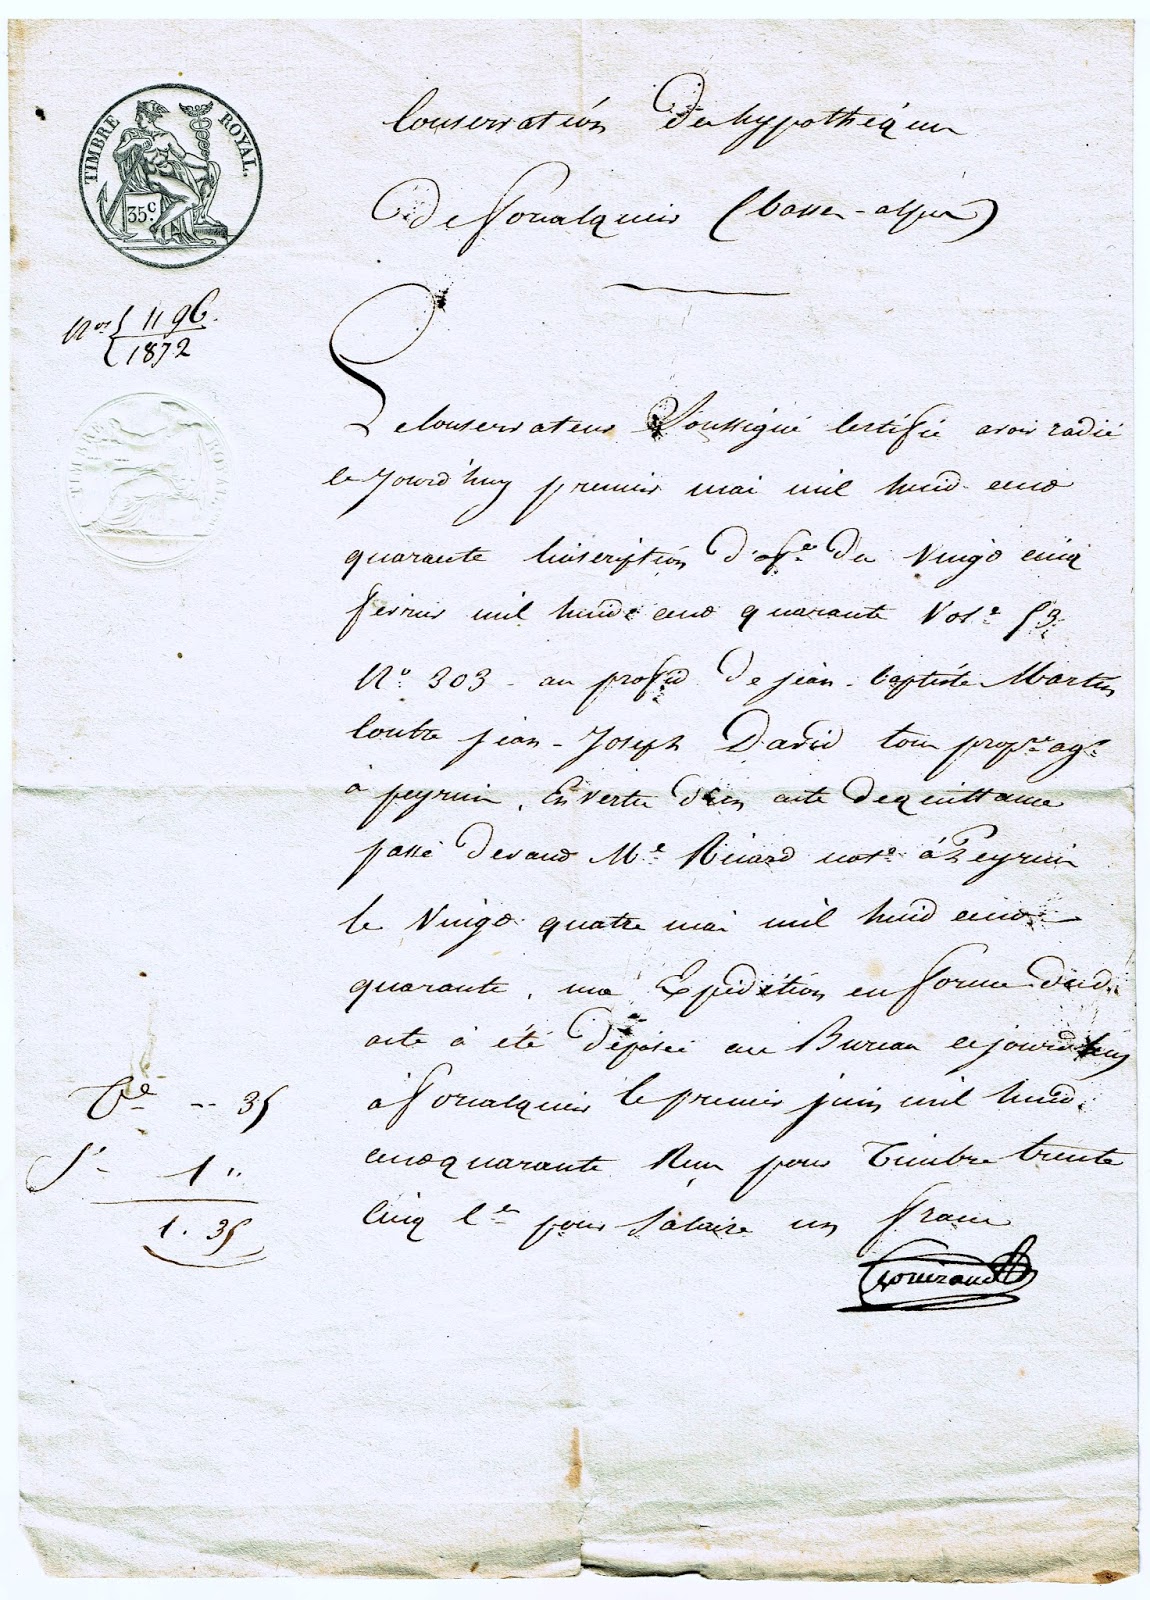 TIMBRE ROYAL.
35c.
Conservation des hypothèques
De forcalquier (basses-alpes)
Nos 1196.
1872
TIMBRE ROYAL
Le Conservateur Soussigné Certifie avoir radié
Ce Jourd'huy premier mai mil huid cend
quarante L'inscription d'ofce du Vingd cinq
fevrier mil huid cend quarante Vole 53
No 303 - au profid De jean-baptiste Martin
Contre jean-Joseph David tous propres agrs
à peyruis, En vertu d'un acte de quittance
passé devand Me Ricard note à Peyruis
le Vingd quatre mai mil huid cend
quarante, une Expédition en forme dud.
acte à été déposée au Bureau cejourd'huy
à forcalquier le premier juin mil huid
cend quarante Reçu pour Timbre trente
Cinq Ces pour Salaire un franc
Bre -- 35
Sre 1 "
1. 35